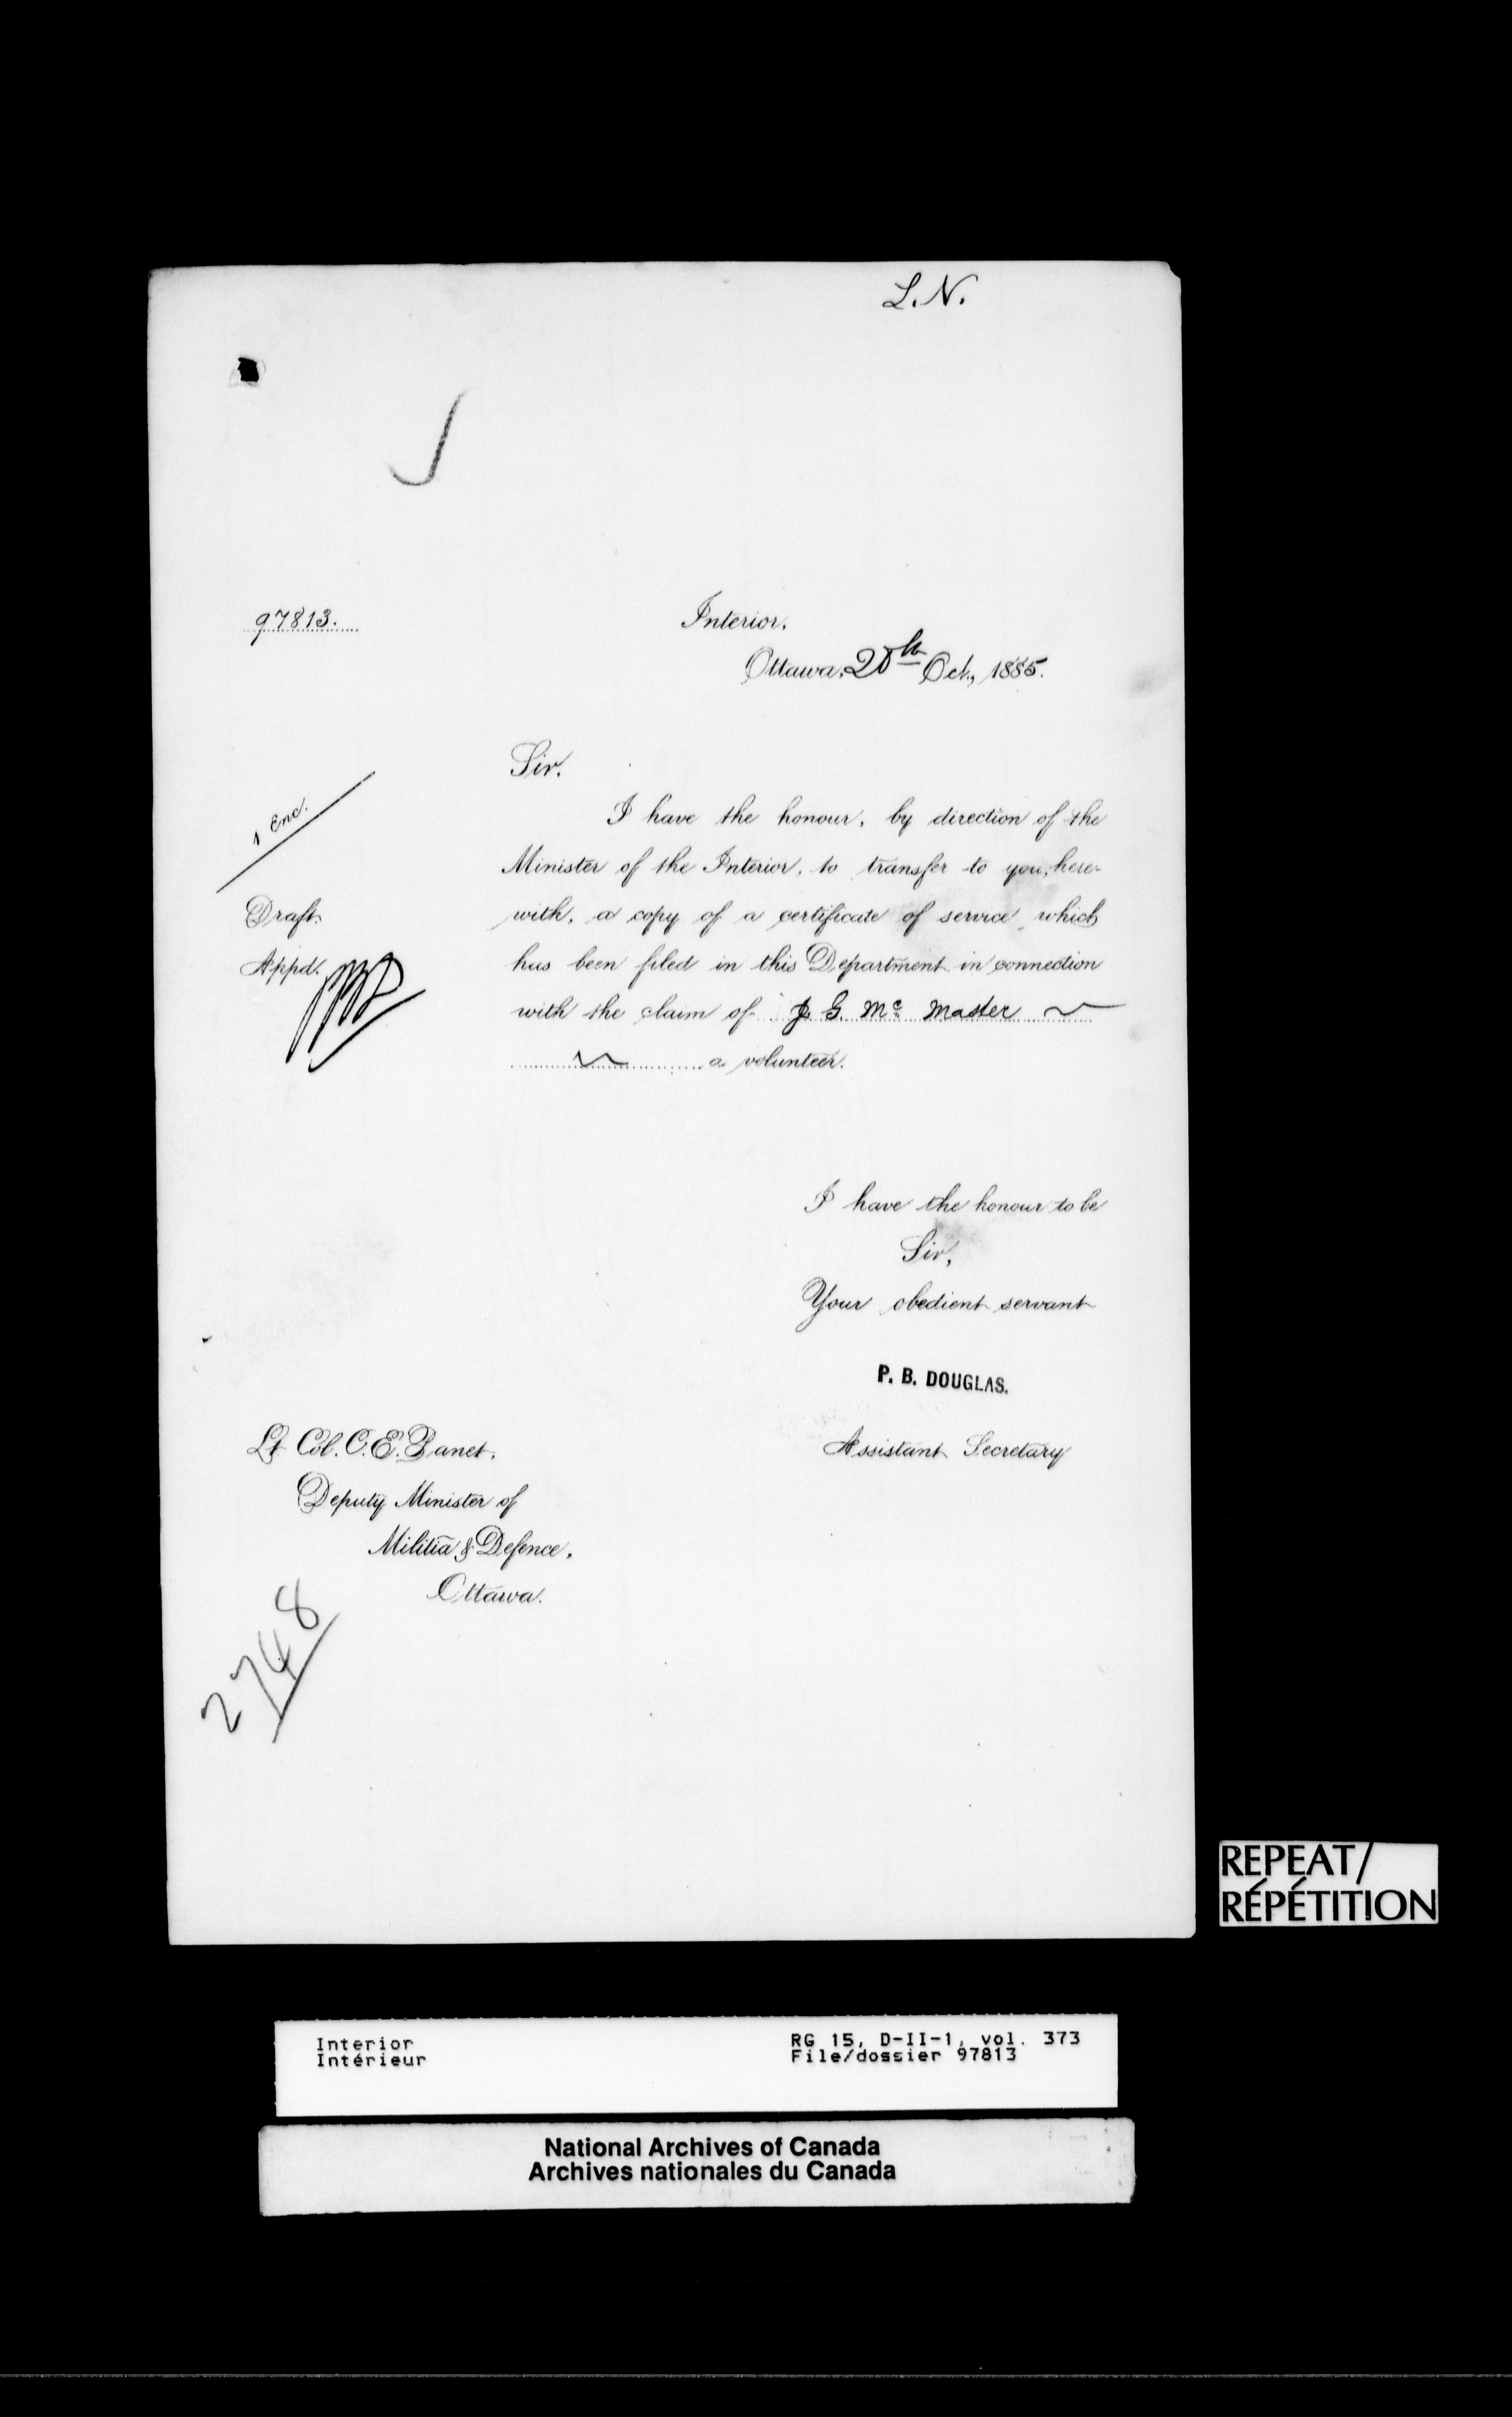 L. N.
97813.
Interior.
Ottawa, 20th Oct., 1885.
Sir.
1 Enc.
I have the honour, by direction of the
Minister of the Interior, to transfer to you, here-
with, a copy of a certificate of service, which
Draft.
has been filed in this Department in connection
Appd.
with the claim of J. G. Mc Master
a volunteer.
I have the honour to be
Sir,
Your obedient servant
P. B. DOUGLAS.
Assistant Secretary
Lt Col. C. E. Panet,
Deputy Minister of
Militia & Defence,
Ottawa.
2748
REPEAT/
RÉPÉTITION
Interior
Intérieur
RG 15, D-II-1, vol. 373
File/dossier 97813
National Archives of Canada
Archives nationales du Canada